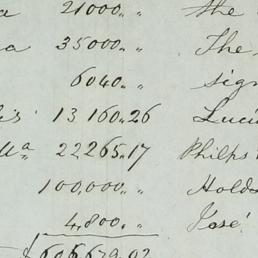 a 21000.. " the
a 35000.. " The
6040.. " sign
is 13 160..26 Luci
Ma 22265..17 Philps
100,000.. " Holds
4,800.. " José
$606679.02